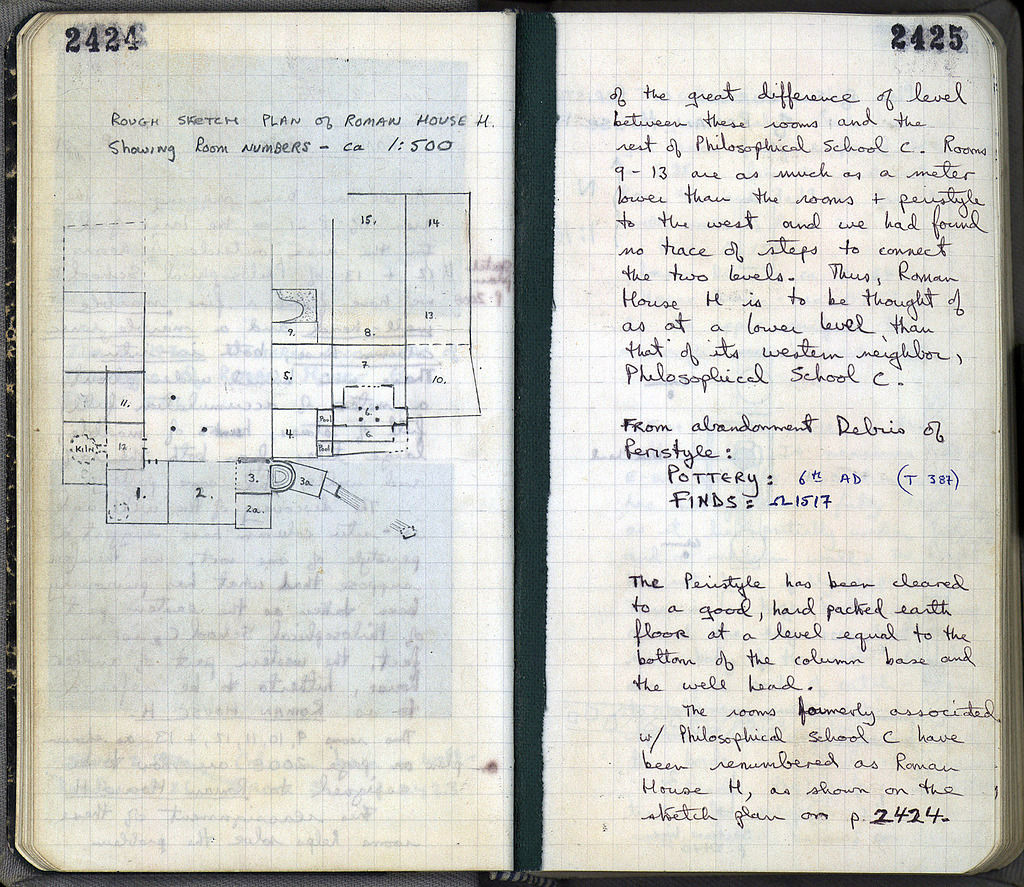 2424
ROUGH SKETCH PLAN of ROMAN HOUSE H.
Showing Room NUMBERS - ca 1:500
15.
14.
13.
9.
8.
7.
5.
10.
11.
6.
Pool
4.
6.
Pool
KILN
12.
3.
3a.
1.
2.
2a.
2425
of the great difference of level
between these rooms and the
rest of Philosophical School C. Rooms
9-13 are as much as a meter
lower than the rooms + peristyle
to the west and we had found
no trace of steps to connect
the two levels. Thus, Roman
House H is to be thought of
as at a lower level than
that of its western neighbor,
Philosophical School C.
From abandonment Debris of
Peristyle:
POTTERY: 6th AD (T 387)
FINDS: Ω 1517
The Peristyle has been cleared
to a good, hard packed earth
floor at a level equal to the
bottom of the column base and
the well head.
The rooms formerly associated
w/ Philosophical School C have
been renumbered as Roman
House H, as shown on the
sketch plan on p. 2424.